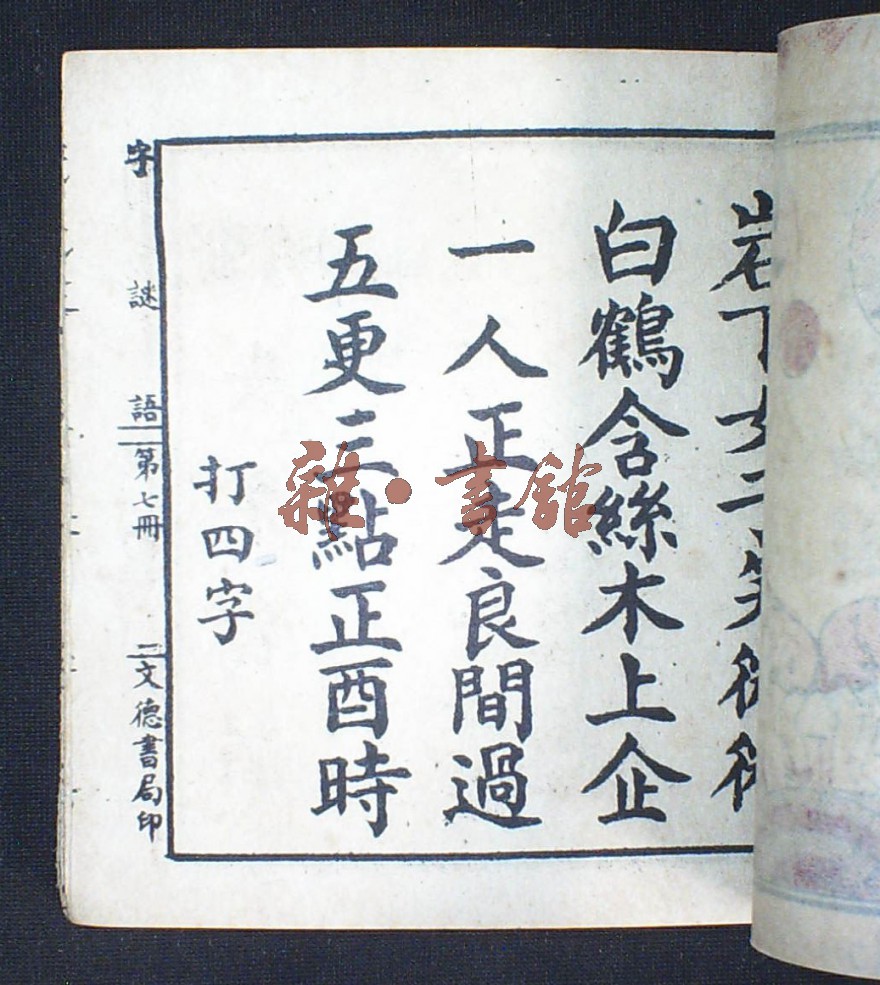 白鶴含絲木上企
一人正走良間過
五更三點正酉時
打四字
字謎語 第七冊 二 文德書局印
雜·書館